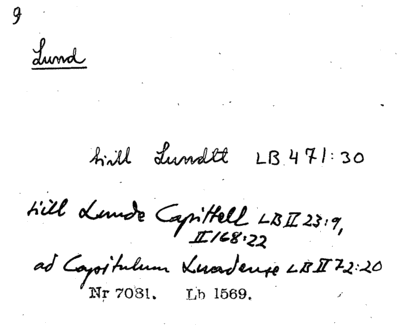 9
Lund
till Lundtt LB 471:30
till Lunde Capittell LB II 23:9,
II/68:22
ad Capitulum Lundense LB II 72:20
Nr 7081. Lb 1569.